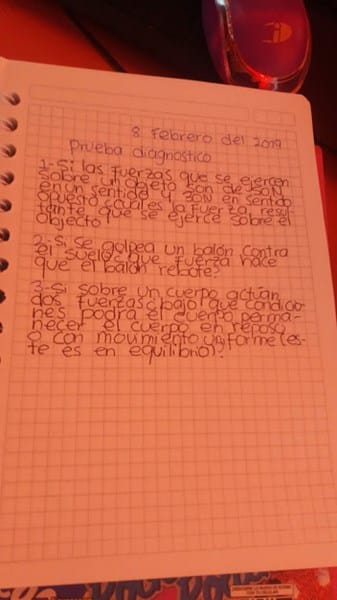 8 Febrero del 2019
Prueba diagnostico
1-Si las fuerzas que se ejercen
sobre un objeto son de 50N
en un sentido y 30N en sentido
opuesto cual es la fuerza resul
tante que se ejerce sobre el
objeto
2-Si se golpea un balón contra
el suelo que fuerza hace
que el balón rebote?
3-Si sobre un cuerpo actúan
dos fuerzas bajo que condicio-
nes podrá el cuerpo perma-
necer el cuerpo en reposo
o con movimiento uniforme (es-
te es en equilibrio)?